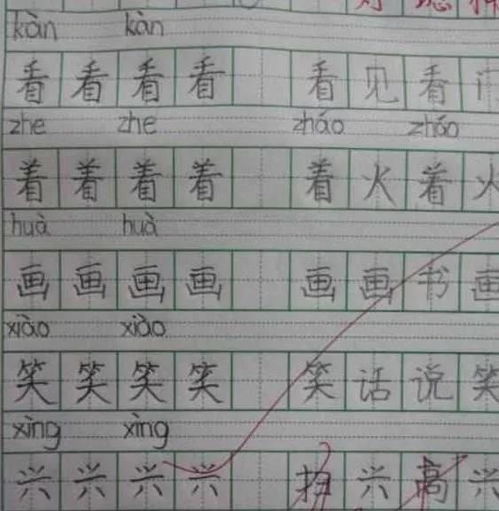 kàn kàn
看 看 看 看 看 见 看
zhe zhe zháo zháo
着 着 着 着 着 火 着 火
huà huà
画 画 画 画 画 画 书 画
xiào xiào
笑 笑 笑 笑 笑 话 说 笑
xìng xìng
兴 兴 兴 兴 扫 兴 高 兴